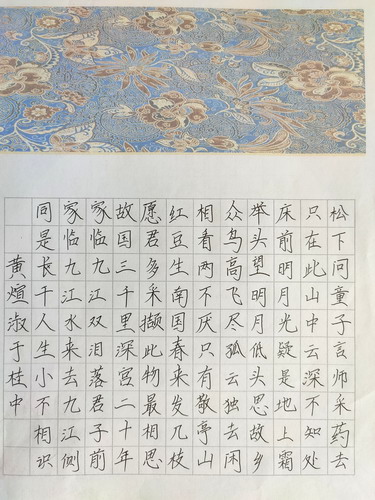 松下问童子言师采药去
只在此山中云深不知处
床前明月光疑是地上霜
举头望明月低头思故乡
众鸟高飞尽孤云独去闲
相看两不厌只有敬亭山
红豆生南国春来发几枝
愿君多采撷此物最相思
故国三千里深宫二十年
家临九江双泪落君子前
家临九江水来去九江侧
同是长干人生小不相识
黄煊淑于桂中